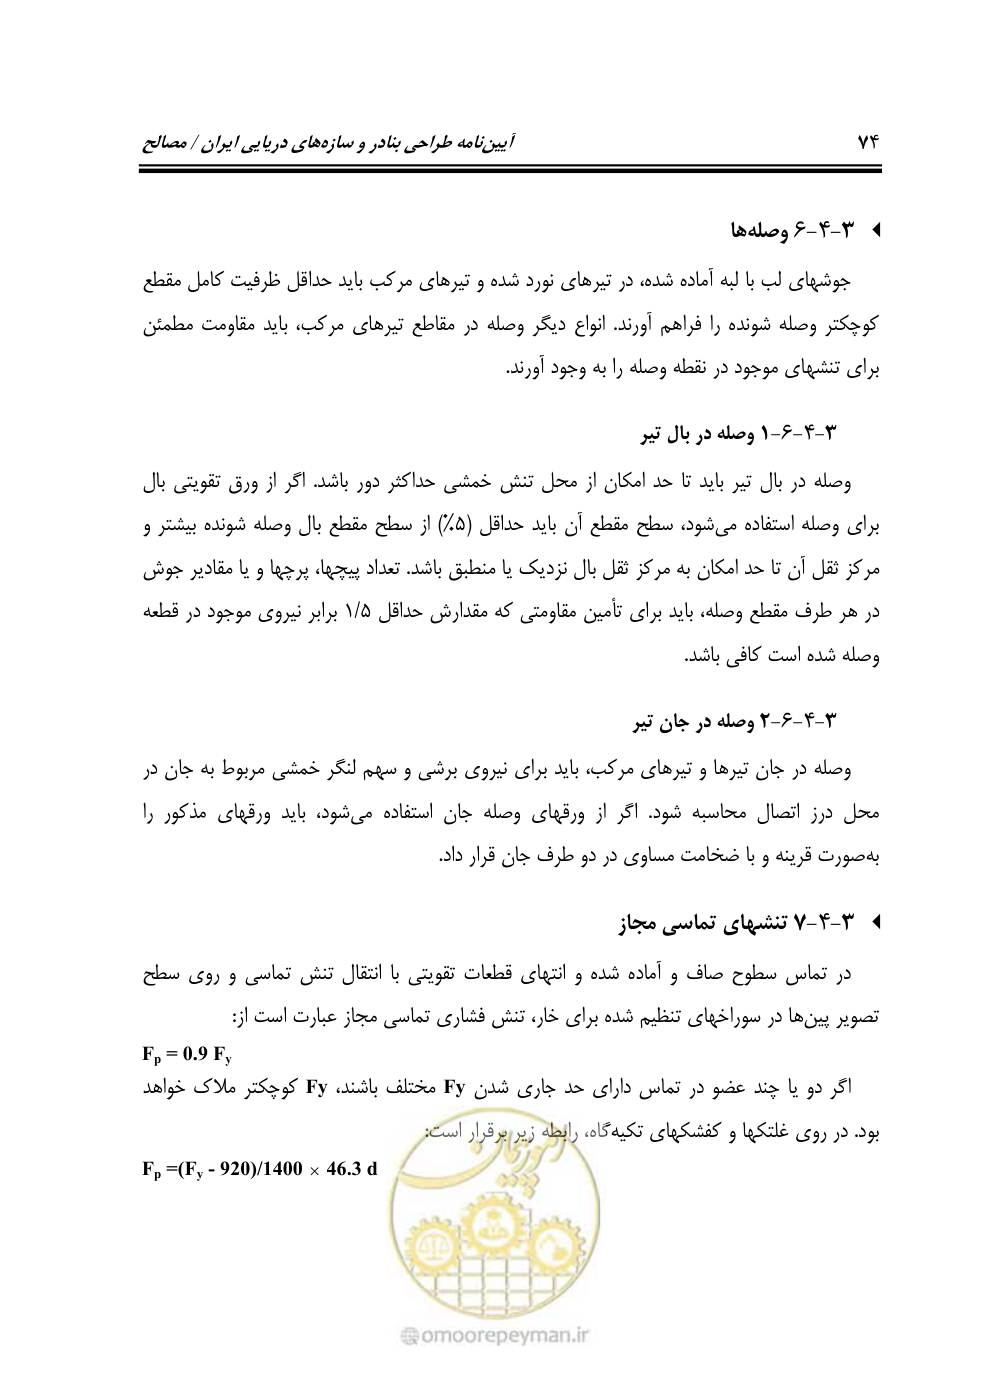 ۷۴ آیین‌نامه طراحی بنادر و سازه‌های دریایی ایران / مصالح
۳-۴-۶ وصله‌ها
جوشهای لب با لبه آماده شده، در تیرهای نورد شده و تیرهای مرکب باید حداقل ظرفیت کامل مقطع
کوچکتر وصله شونده را فراهم آورند. انواع دیگر وصله در مقاطع تیرهای مرکب، باید مقاومت مطمئن
برای تنشهای موجود در نقطه وصله را به وجود آورند.
۳-۴-۶-۱ وصله در بال تیر
وصله در بال تیر باید تا حد امکان از محل تنش خمشی حداکثر دور باشد. اگر از ورق تقویتی بال
برای وصله استفاده می‌شود، سطح مقطع آن باید حداقل (۵٪) از سطح مقطع بال وصله شونده بیشتر و
مرکز ثقل آن تا حد امکان به مرکز ثقل بال نزدیک یا منطبق باشد. تعداد پیچها، پرچها و یا مقادیر جوش
در هر طرف مقطع وصله، باید برای تأمین مقاومتی که مقدارش حداقل ۱/۵ برابر نیروی موجود در قطعه
وصله شده است کافی باشد.
۳-۴-۶-۲ وصله در جان تیر
وصله در جان تیرها و تیرهای مرکب، باید برای نیروی برشی و سهم لنگر خمشی مربوط به جان در
محل درز اتصال محاسبه شود. اگر از ورقهای وصله جان استفاده می‌شود، باید ورقهای مذکور را
به‌صورت قرینه و با ضخامت مساوی در دو طرف جان قرار داد.
۳-۴-۷ تنشهای تماسی مجاز
در تماس سطوح صاف و آماده شده و انتهای قطعات تقویتی با انتقال تنش تماسی و روی سطح
تصویر پین‌ها در سوراخهای تنظیم شده برای خار، تنش فشاری تماسی مجاز عبارت است از:
Fp = 0.9 Fy
اگر دو یا چند عضو در تماس دارای حد جاری شدن Fy مختلف باشند، Fy کوچکتر ملاک خواهد
بود. در روی غلتکها و کفشکهای تکیه‌گاه، رابطه زیر برقرار است:
Fp =(Fy - 920)/1400 × 46.3 d
امورپیمان
@omoorepeyman.ir